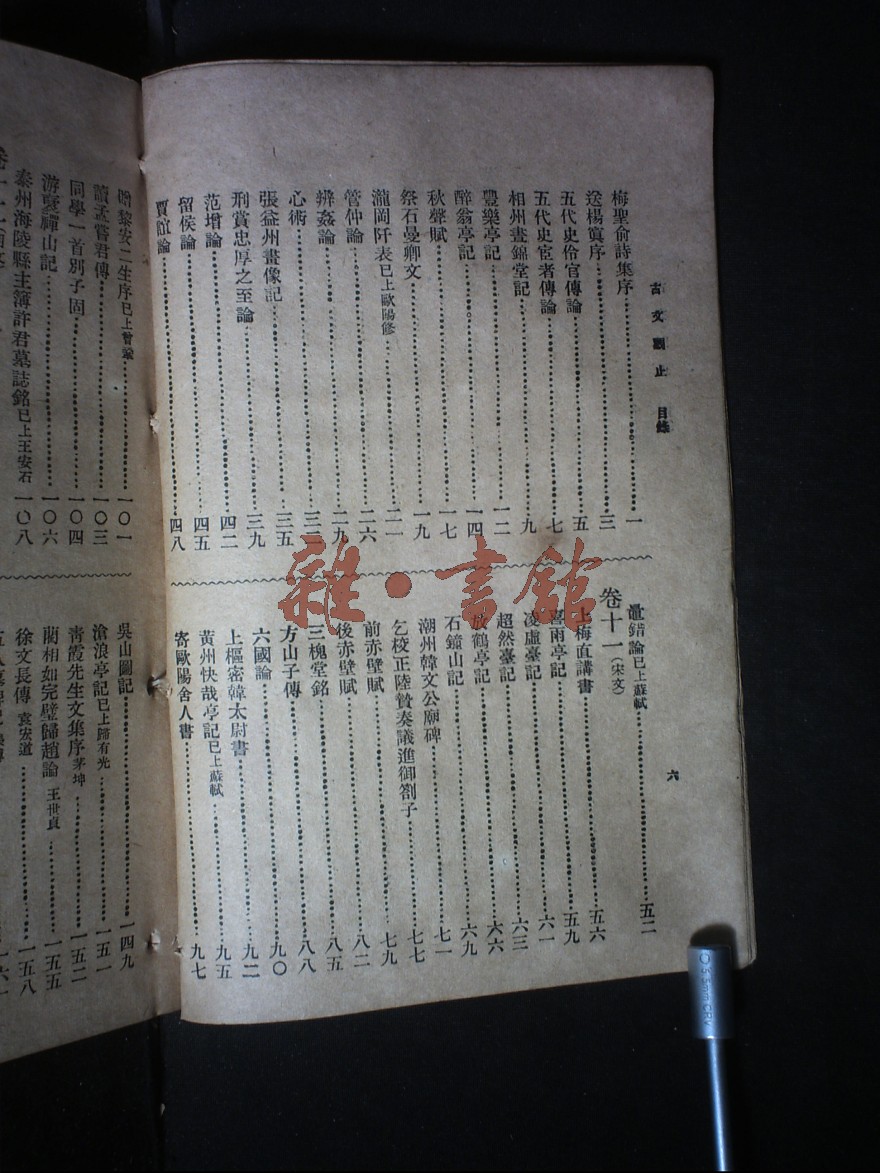 古文觀止 目錄
梅聖俞詩集序 一
送楊寘序 三
五代史伶官傳論 五
五代史宦者傳論 七
相州晝錦堂記 九
豐樂亭記 一二
醉翁亭記 一四
秋聲賦 一七
祭石曼卿文 一九
瀧岡阡表已上歐陽修 二一
管仲論 二六
辨姦論 二九
心術 三二
張益州畫像記 三五
刑賞忠厚之至論 三九
范增論 四二
留侯論 四五
賈誼論 四八
鼂錯論已上蘇軾 五二
卷十一(宋文)
上梅直講書 五六
喜雨亭記 五九
凌虛臺記 六一
超然臺記 六三
放鶴亭記 六六
石鐘山記 六九
潮州韓文公廟碑 七一
乞校正陸贄奏議進御劄子 七七
前赤壁賦 七九
後赤壁賦 八二
三槐堂銘 八五
方山子傳 八八
六國論 九〇
上樞密韓太尉書 九二
黃州快哉亭記已上蘇軾 九五
寄歐陽舍人書 九七
六
贈黎安二生序已上曾鞏 一〇一
讀孟嘗君傳 一〇三
同學一首別子固 一〇四
游褒禪山記 一〇六
泰州海陵縣主簿許君墓誌銘已上王安石 一〇八
吳山圖記 一四九
滄浪亭記已上歸有光 一五一
青霞先生文集序茅坤 一五二
藺相如完璧歸趙論 王世貞 一五五
徐文長傳 袁宏道 一五八
雜·書館